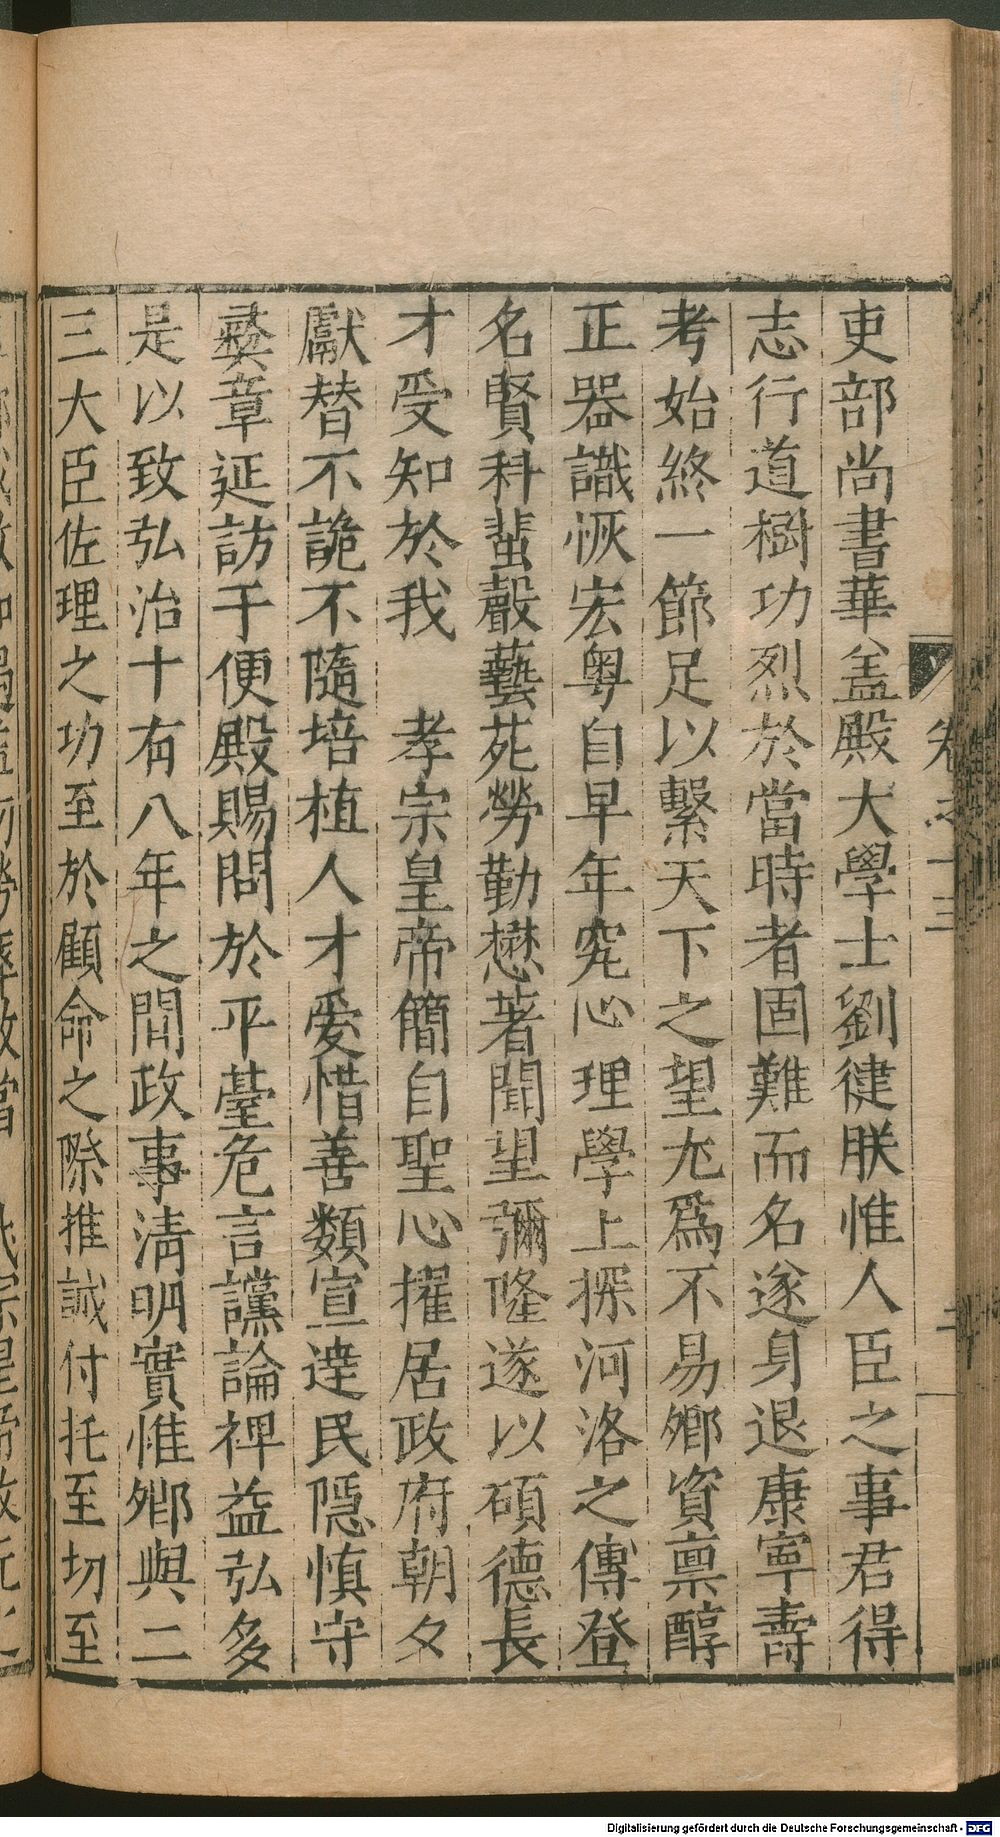 吏部尚書華盖殿大學士劉健朕惟人臣之事君得
志行道樹功烈於當時者固難而名遂身退康寧壽
考始終一節足以繫天下之望尤爲不易卿資禀醇
正器識恢宏粤自早年究心理學上探河洛之傳登
名賢科蜚聲藝苑勞勤懋著聞望彌隆遂以碩德長
才受知於我 孝宗皇帝簡自聖心擢居政府朝夕
獻替不詭不隨培植人才爱惜善類宣達民隱慎守
彝章延訪于便殿賜問於平臺危言讜論裨益弘多
是以致弘治十有八年之間政事淸明實惟卿與二
三大臣佐理之功至於顧命之際推誠付托至切至
卷之十三
Digitalisierung gefördert durch die Deutsche Forschungsgemeinschaft - DFG